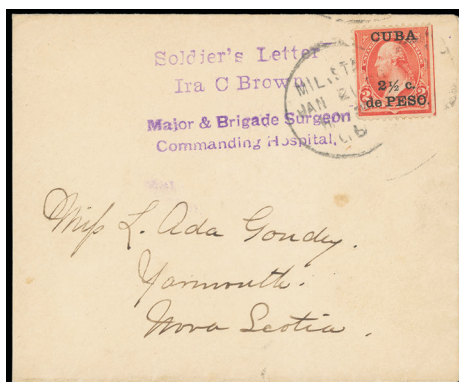 Soldier's Letter
Ira C Brown
Major & Brigade Surgeon
Commanding Hospital.
CUBA
2½ c.
de PESO.
MIL. STA
JAN 21
Miss L. Ada Goudey.
Yarmouth.
Nova Scotia.